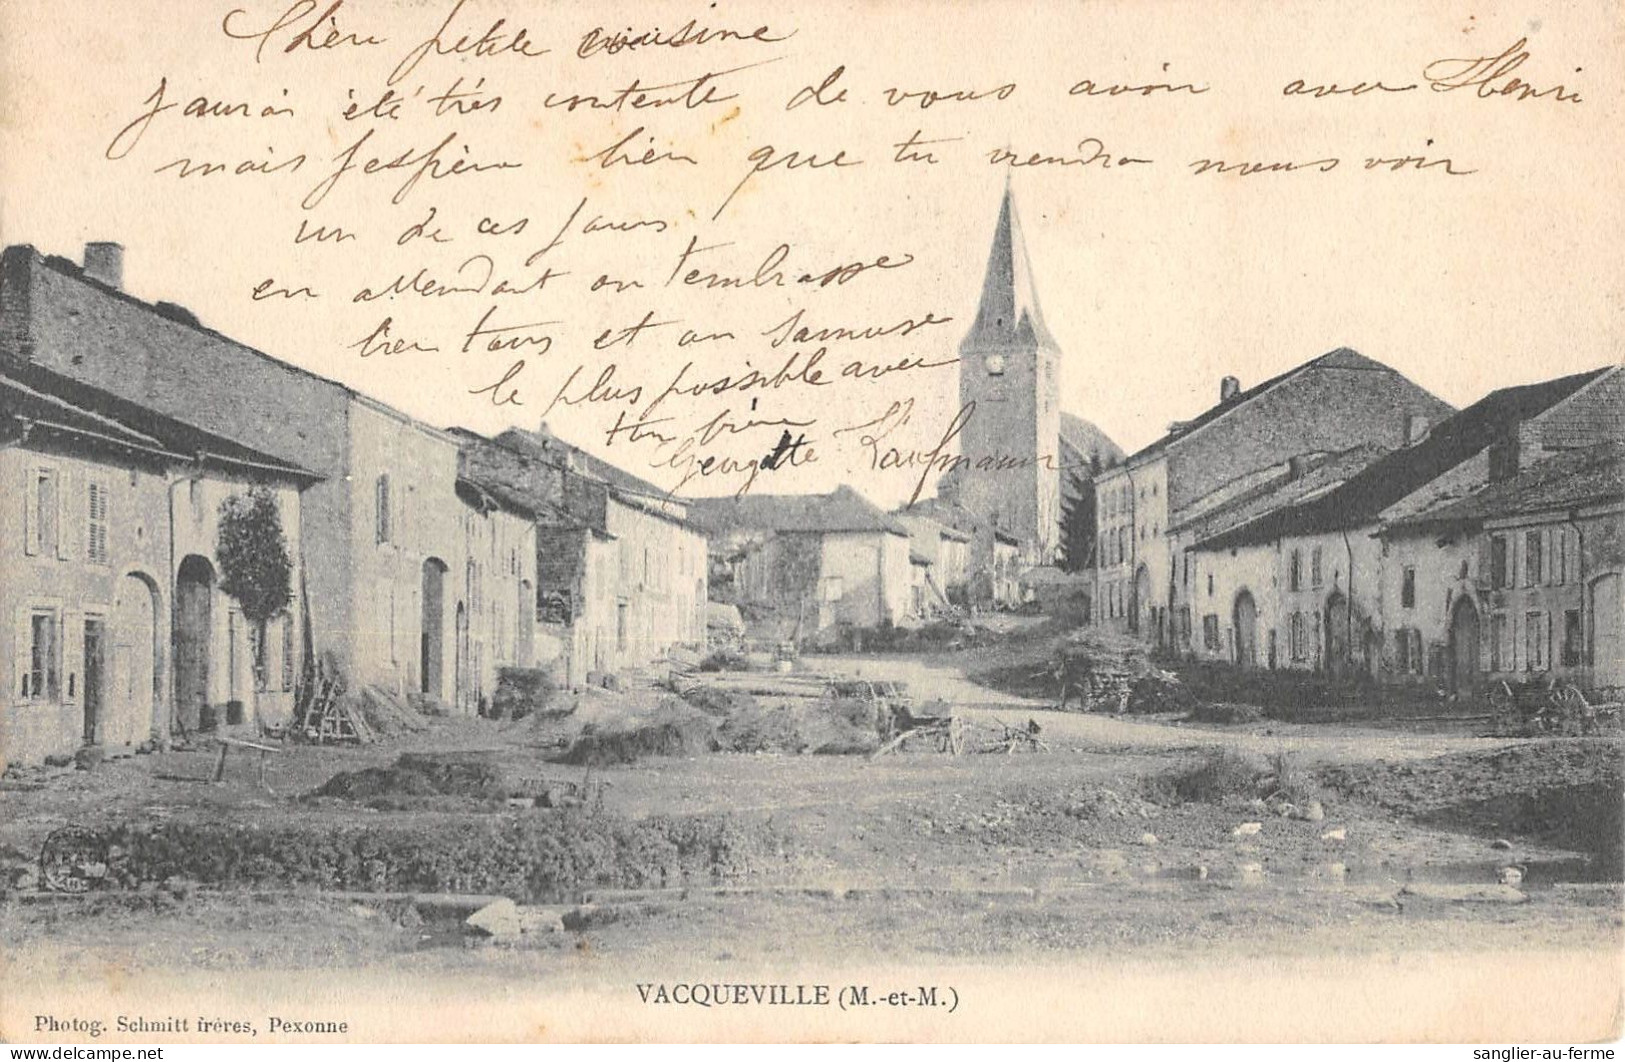 Chère petite cousine
J'aurai été très contente de vous avoir avec Henri
mais j'espère bien que tu viendra nous voir
un de ces jours
en attendant on t'embrasse
bien tous et on s'amuse
le plus possible avec
ton frère
Georgette Kaufmann
VACQUEVILLE (M.-et-M.)
Photog. Schmitt frères, Pexonne
delcampe.net
sanglier-au-ferme